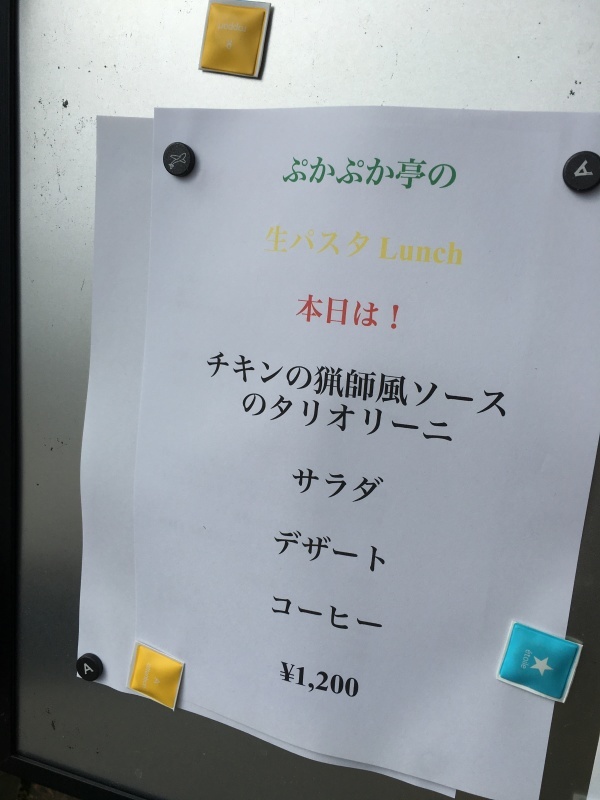 ぷかぷか亭の
生パスタ Lunch
本日は！
チキンの猟師風ソース
のタリオリーニ
サラダ
デザート
コーヒー
¥1,200
A
A
étoile